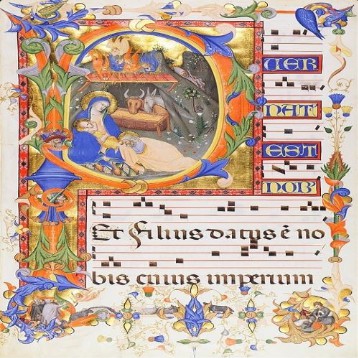 PUER
NATI
EST
NOB
Et Filius datus ē no
bis cuius imperium